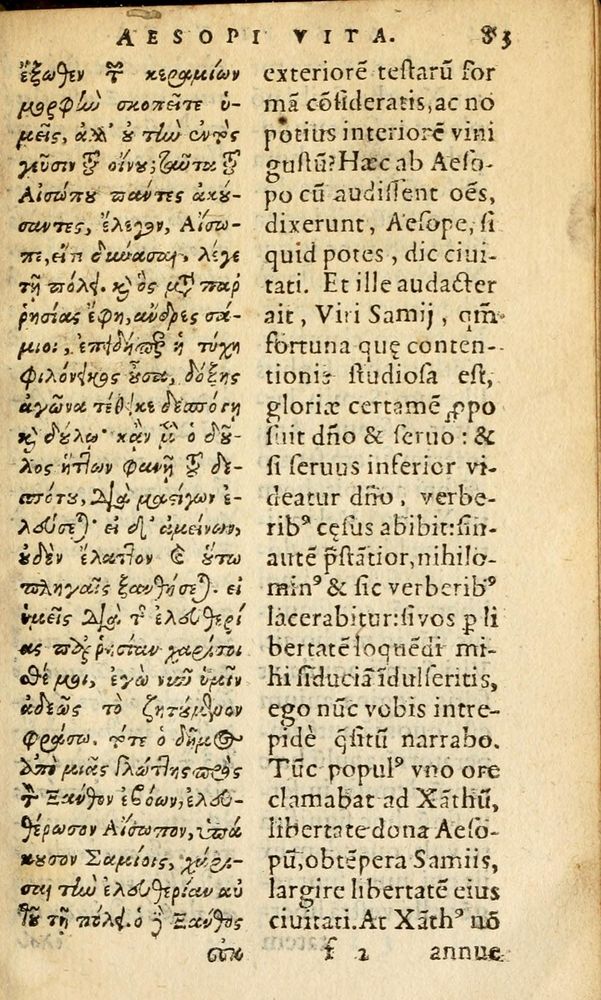 AESOPI VITA. 83
ἔξωθεν τῶν κεραμίων
μορφὴν σκοπεῖτε ὑ-
μεῖς, ἀλλ' οὐ τὴν ἐντὸς
γεῦσιν τοῦ οἴνου; ταῦτα τοῦ
Αἰσώπου πάντες ἀκού-
σαντες, ἔλεγον, Αἴσω-
πε, εἴπερ δύνασαι, λέγε
τῇ πόλει. καὶ ὃς μετὰ παρ
ρησίας ἔφη, ἄνδρες σά-
μιοι, ἐπειδήπερ ἡ τύχη
φιλόνεικος οὖσα, δόξης
ἀγῶνα τέθεικε δεσπότῃ
καὶ δούλῳ· κἂν μὲν ὁ δοῦ-
λος ἥττων φανῇ τοῦ δε-
σπότου, διὰ μαστίγων ἐ-
λεύσεται· εἰ δ' ἀμείνων,
οὐδὲν ἔλαττον καὶ οὕτω
πληγαῖς ξανθήσεται. εἰ
ὑμεῖς διὰ τῆς ἐλευθερί
ας παρρησίαν χαρίζοι
σθέ μοι, ἐγὼ νῦν ὑμῖν
ἀδεῶς τὸ ζητούμενον
φράσω. τότε ὁ δῆμος
ἀπὸ μιᾶς γλώττης πρὸς
τὸν Ξάνθον ἐβόων, ἐλευ-
θέρωσον Αἴσωπον, ὑπά
κουσον Σαμίοις, χάρι-
σαι τὴν ἐλευθερίαν αὐ
τοῦ τῇ πόλει. ὁ δὲ Ξάνθος
οὐκ
exteriorē testarū for
mā cōsideratis, ac nō
potius interiorē vini
gustū? Hæc ab Aeso-
po cū audissent oēs,
dixerunt, Aesope, si
quid potes, dic ciui-
tati. Et ille audacter
ait, Viri Samij, qm̄
fortuna quę conten-
tionis studiosa est,
gloriæ certamē ꝓpo
suit dño & seruo: &
si seruus inferior vi-
deatur dño, verbe-
ribꝰ cęsus abibit: sin
autē p̄stātior, nihilo-
minꝰ & sic verberibꝰ
lacerabitur: si vos ꝑ li
bertatē loquēdi mi-
hi fiduciā īdulseritis,
ego nūc vobis intre-
pidè q̄situ narrabo.
Tūc populꝰ vno ore
clamabat ad Xāthū,
libertate dona Aeso-
pū, obtēpera Samiis,
largire libertatē eius
ciuitati. At Xāthꝰ nō
f 2 annue